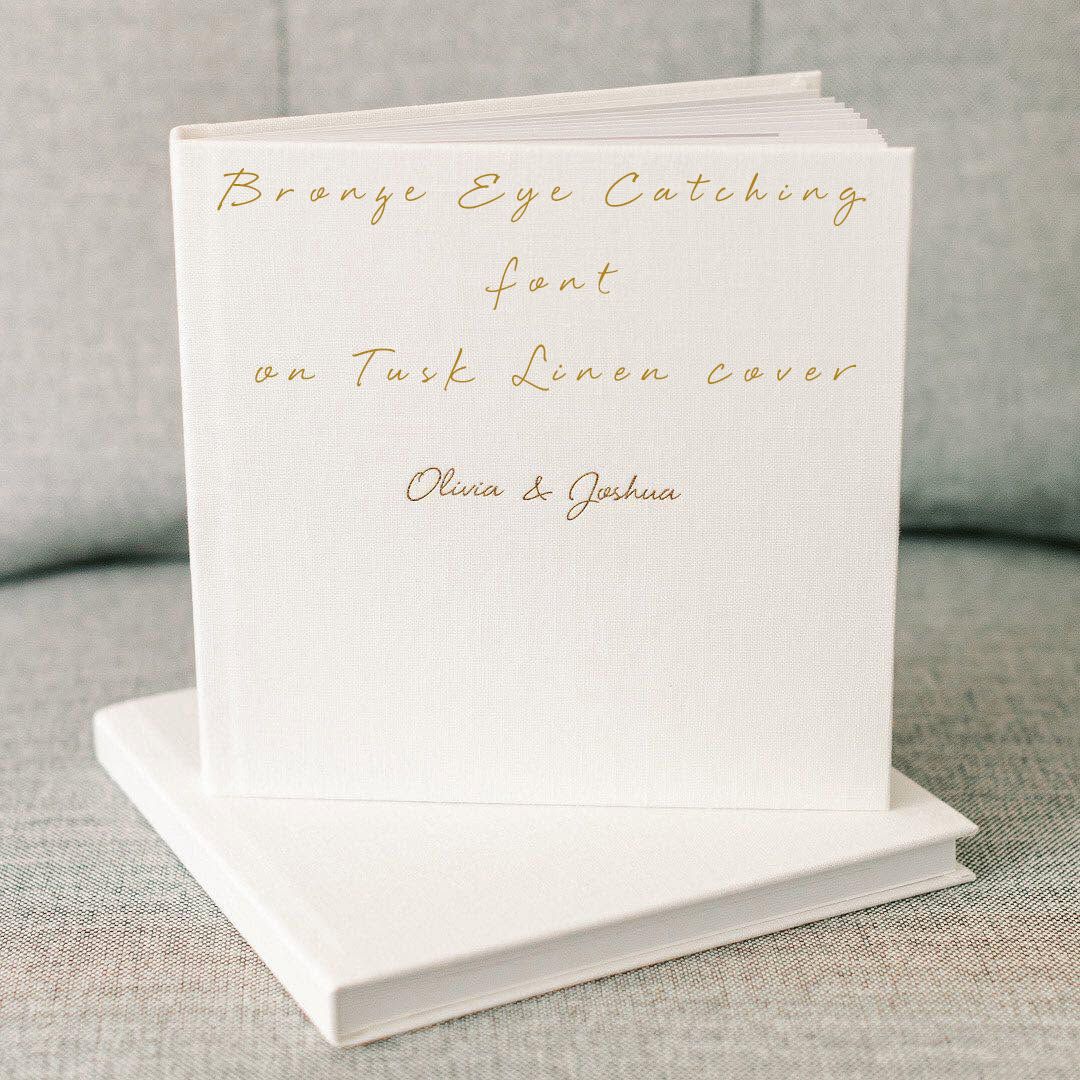 Bronze Eye Catching
font
on Tusk Linen cover
Olivia & Joshua